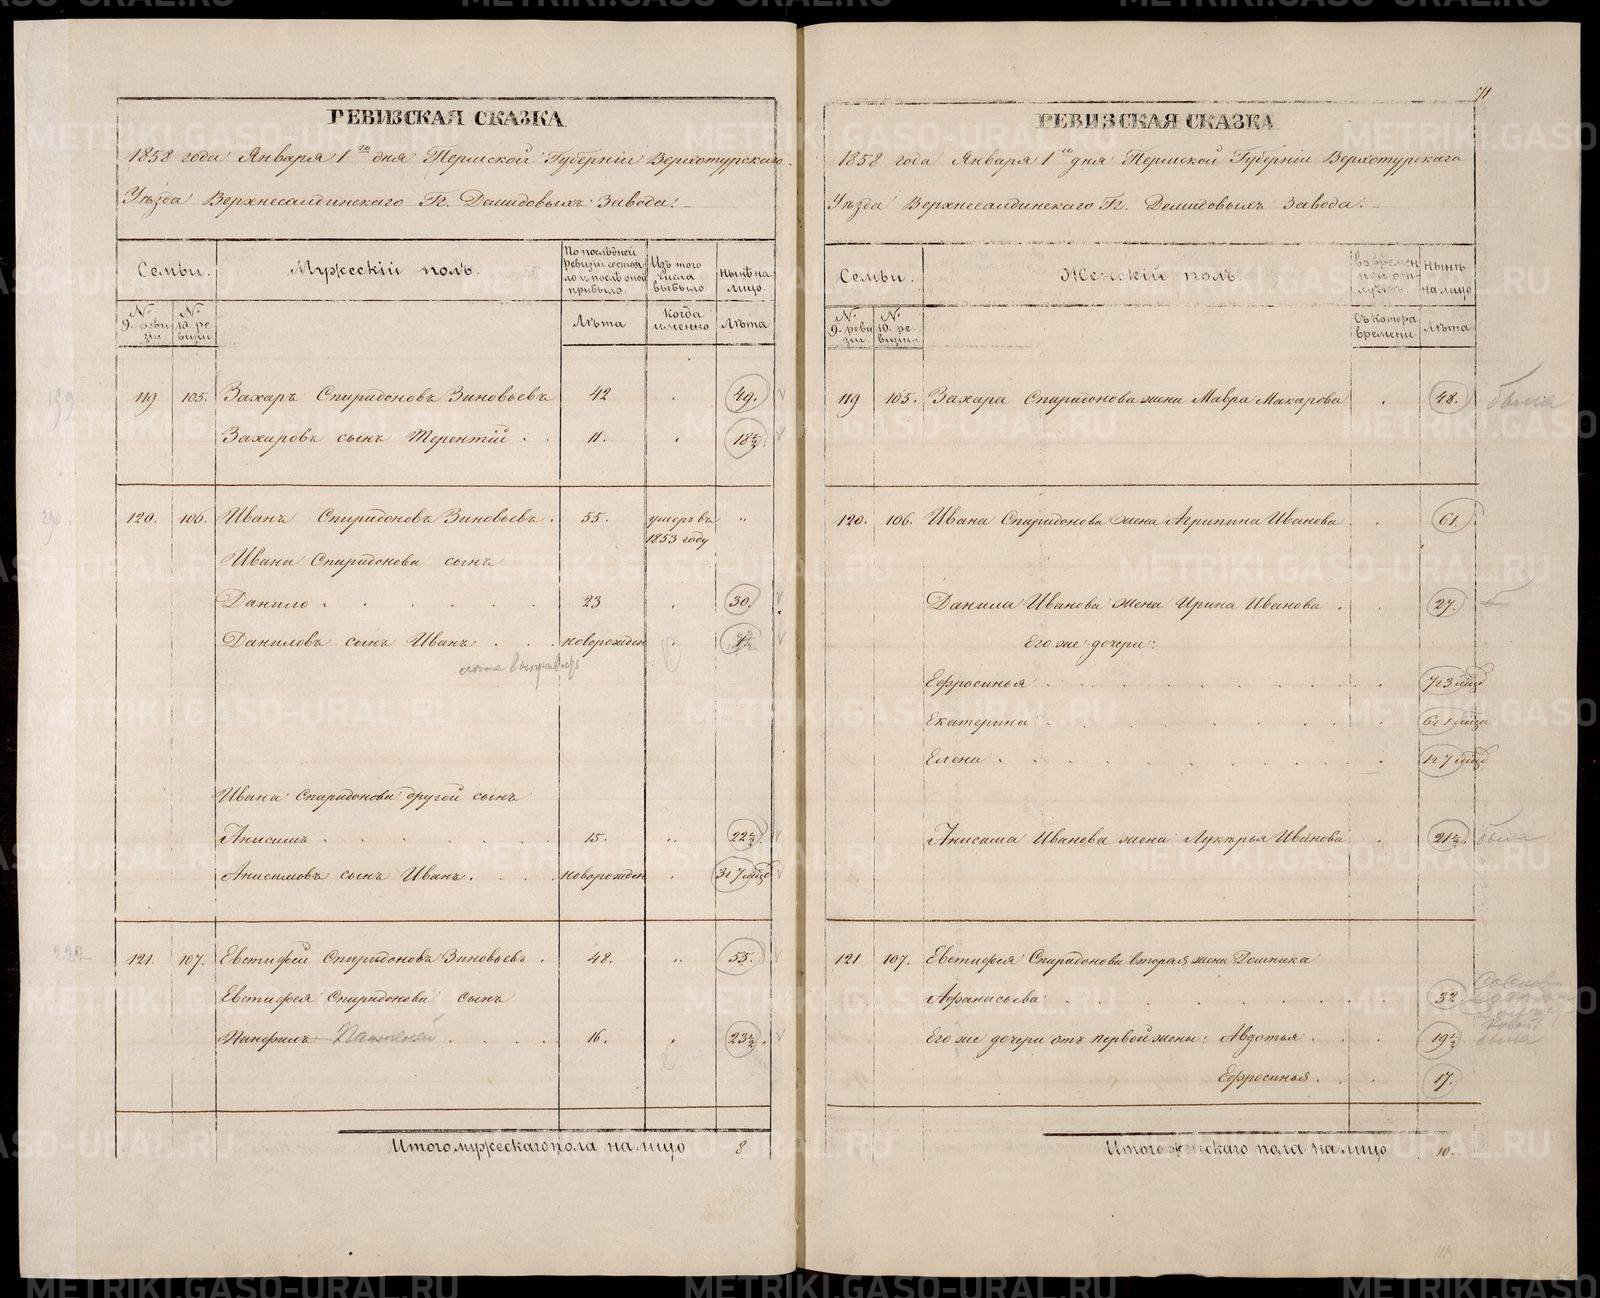 РЕВИЗСКАЯ СКАЗКА
1858 года Января 1го дня Пермской Губернiи Верхотурскаго
Уѣзда Верхнесалдинскаго Гг. Демидовыхъ Завода:
Семьи.
Мужескiй полъ.
По послѣдней ревизiи состояло и послѣ оной прибыло.
Изъ того числа выбыло
нынѣ на лицо.
№ 9. ревизiи
№ 10. ревизiи
Лѣта
Когда именно
Лѣта
119 105. Захаръ Спиридоновъ Зиновьевъ 42 49.
Захаровъ сынъ Терентiй 11. 18½
120. 106. Иванъ Спиридоновъ Зиновьевъ. 55. умеръ въ „
1853 году
Ивана Спиридонова сынъ
Данило 23 30.
Даниловъ сынъ Иванъ новорожден
Ивана Спиридонова другой сынъ
Анисимъ 15. 22½
Анисимовъ сынъ Иванъ. новорожден 3г 7 мѣс
121. 107. Евстифей Спиридоновъ Зиновьевъ. 48. 55.
Евстифея Спиридонова сынъ
Панфилъ 16. 23½.
Итого мужескаго пола на лицо 8
71
РЕВИЗСКАЯ СКАЗКА
1858 года Января 1го дня Пермской Губернiи Верхотурскаго
Уѣзда Верхнесалдинскаго Гг. Демидовыхъ Завода.
Семьи.
Женскiй полъ.
Во временной отлучкѣ.
Нынѣ на лицо
№ 9. ревизiи
№ 10. ревизiи
Съ котора времени
Лѣта
119 105. Захара Спиридонова жена Мавра Макарова 48. была
120. 106. Ивана Спиридонова жена Агрипина Иванова 61.
Данила Иванова жена Ирина Иванова. 27.
Его же дочери:
Ефросинья 7г 3 мѣс
Екатерина 6г 1 мѣс
Елена 1г 7 мѣс
Анисима Иванова жена Лукерья Иванова 21½. была
121 107. Евстифея Спиридонова вторая жена Домника
Афанасьева 32
Его же дочери отъ первой жены: Авдотья 19½ была
Ефросинья 17.
Итого женскаго пола на лицо 10.
METRIKI.GASO-URAL.RU